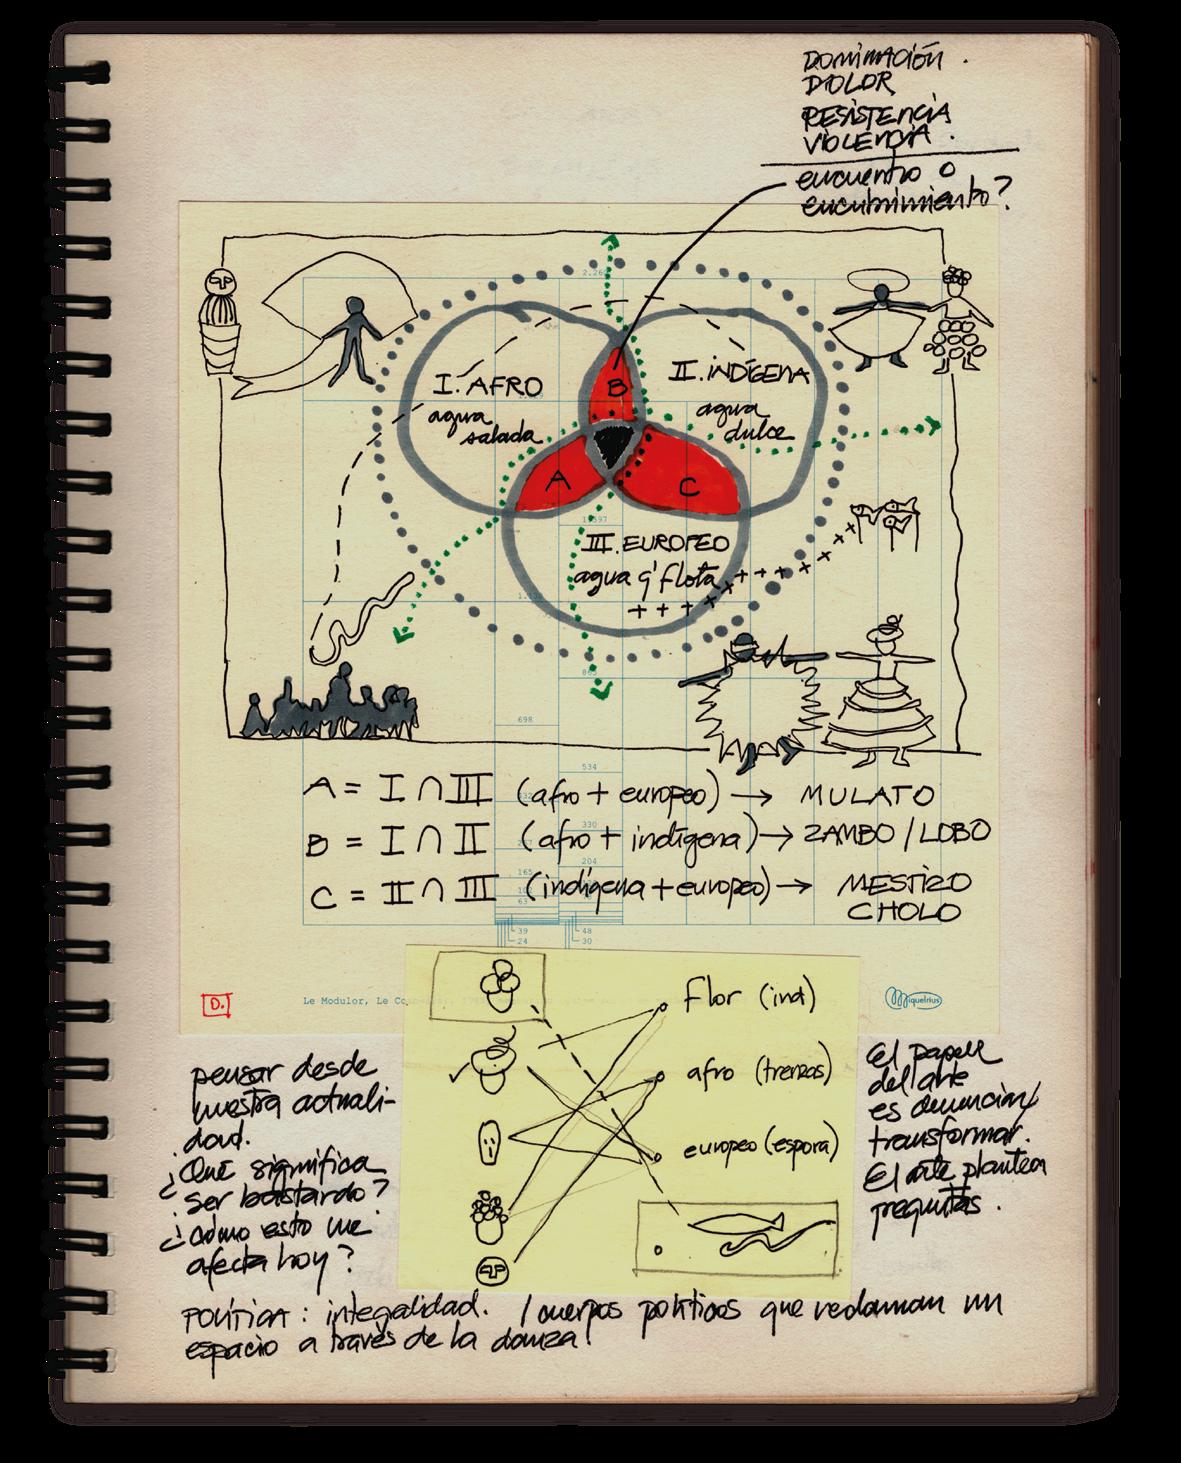 DOMINACIÓN.
DOLOR
RESISTENCIA
VIOLENCIA.
encuentro o
encubrimiento?
2.26
I. AFRO
agua
salada
B
II. INDÍGENA
agua
dulce
A
C
III. EUROPEO
agua q' flota
863
698
534
A = I ∩ III (afro + europeo) → MULATO
330
B = I ∩ II (afro + indígena) → ZAMBO / LOBO
204
165
C = II ∩ III (indígena + europeo) → MESTIZO
CHOLO
63
39 48
24 30
D.
Le Modulor, Le
Miquelrius
flor (ind)
afro (trenzas)
europeo (espora)
pensar desde
nuestra actuali-
dad.
¿Qué significa
ser bastardo?
¿Cómo esto me
afecta hoy?
El papel
del arte
es denunciar/
transformar.
El arte plantea
preguntas.
POLÍTICA: integralidad. / cuerpos políticos que reclaman un
espacio a través de la danza!